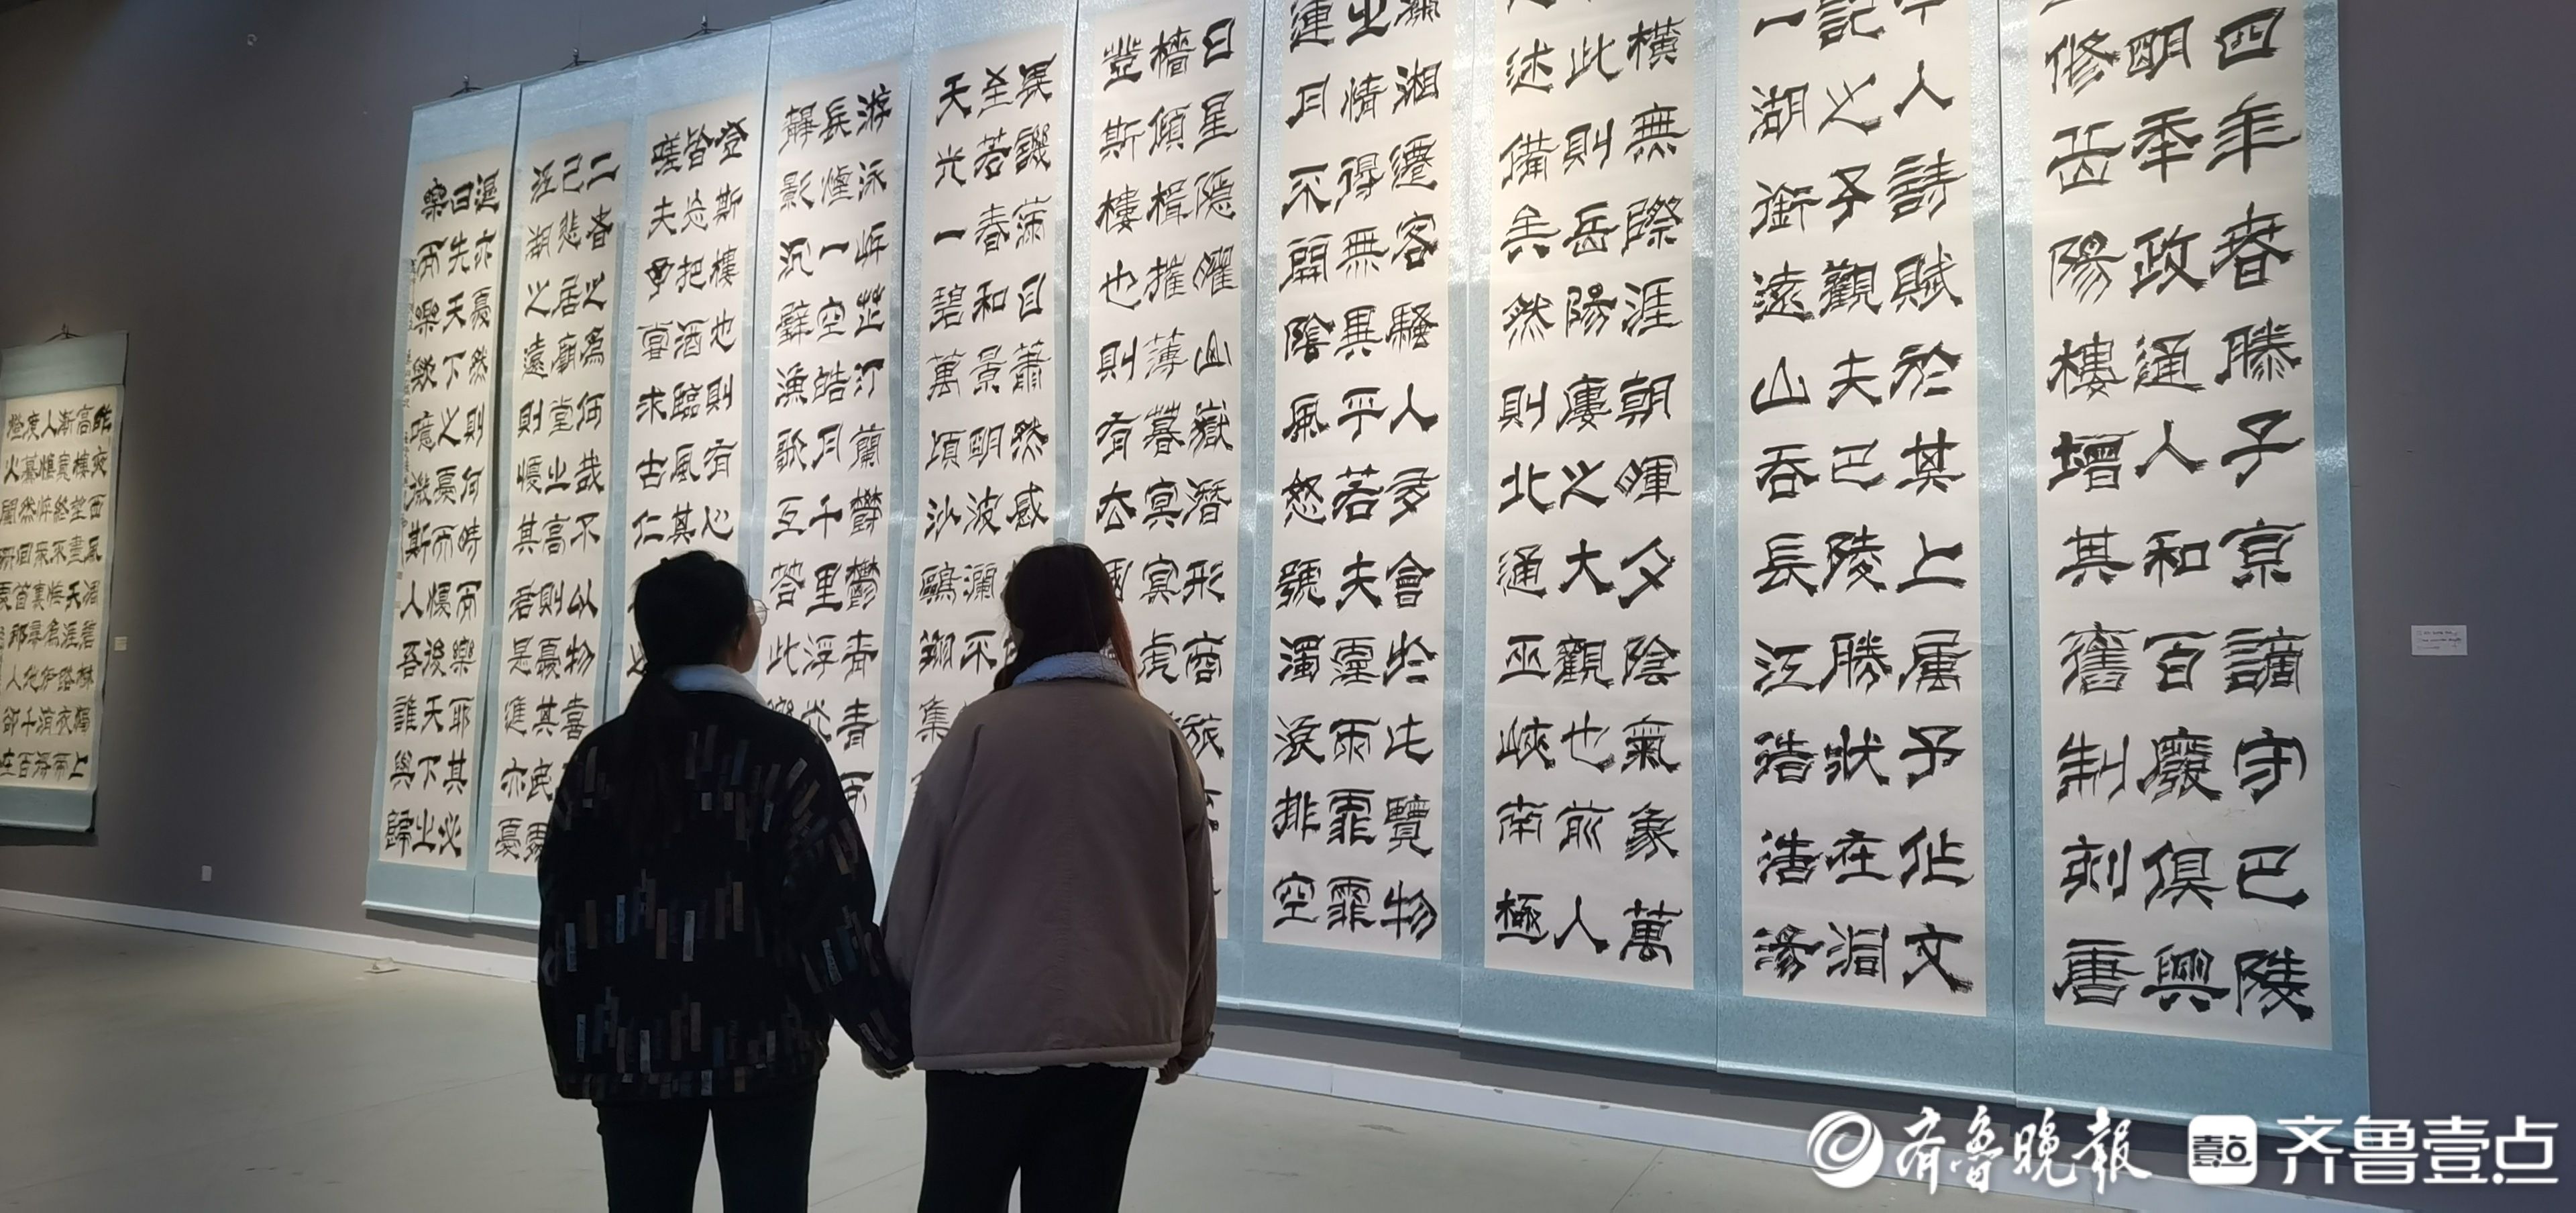 四年春滕子京謫守巴陵
明年政通人和百廢俱興
修岳陽樓增其舊制刻唐
人詩賦於其上屬予作文
記之予觀夫巴陵勝狀在洞
一湖銜遠山吞長江浩浩湯
橫無際涯朝暉夕陰氣象萬
此則岳陽樓之大觀也前人
述備矣然則北通巫峽南極
瀟湘遷客騷人多會於此覽物
之情得無異乎若夫霪雨霏霏
連月不開陰風怒號濁浪排空
日星隱耀山嶽潛形商旅
檣傾楫摧薄暮冥冥虎
登斯樓也則有去國
畏譏滿目蕭然感
至若春和景明波瀾不
天光一碧萬頃沙鷗翔集
游泳岸芷汀蘭鬱鬱青青而
長煙一空皓月千里浮光
靜影沉璧漁歌互答此樂
登斯樓也則有心
皆忘把酒臨風其
嗟夫予嘗求古仁
二者之為何哉不以物喜
己悲居廟堂之高則憂其民
江湖之遠則憂其君是進亦憂
退亦憂然則何時而樂耶其必
曰先天下之憂而憂後天下之
樂而樂歟噫微斯人吾誰與歸
昨夜西風凋碧樹獨上
高樓望盡天涯路衣
漸寬終不悔為伊消
人憔悴裏尋他千百
度驀然回首那人卻在
燈火闌
齐鲁晚报
壹点 齐鲁壹点